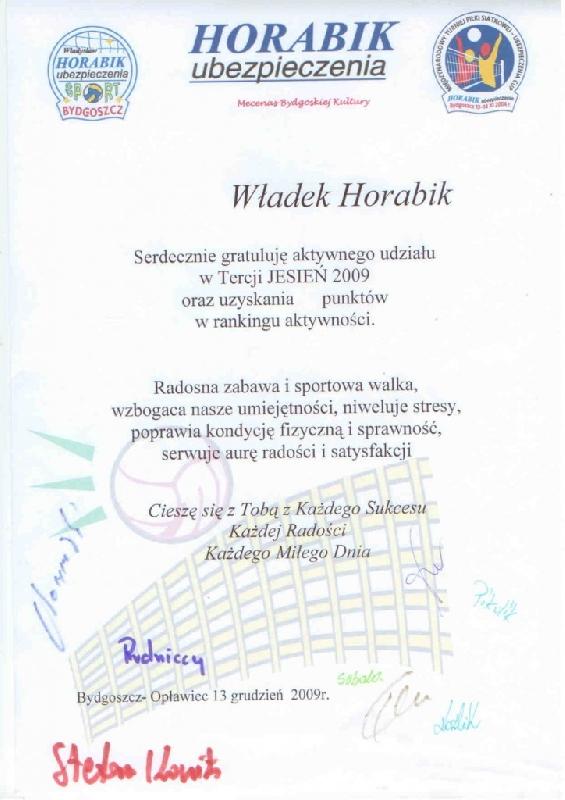 Władysław
HORABIK
ubezpieczenia
SPORT
BYDGOSZCZ
HORABIK
ubezpieczenia
Mecenas Bydgoskiej Kultury
MIĘDZYNARODOWY TURNIEJ PIŁKI SIATKOWEJ - UBEZPIECZENIA CUP
HORABIK ubezpieczenia
Władek Horabik
Serdecznie gratuluję aktywnego udziału
w Tercji JESIEŃ 2009
oraz uzyskania punktów
w rankingu aktywności.
Radosna zabawa i sportowa walka,
wzbogaca nasze umiejętności, niweluje stresy,
poprawia kondycję fizyczną i sprawność,
serwuje aurę radości i satysfakcji
Cieszę się z Tobą z Każdego Sukcesu
Każdej Radości
Każdego Miłego Dnia
Rudniccy
Bydgoszcz- Opławiec 13 grudzień 2009r.
Stefan